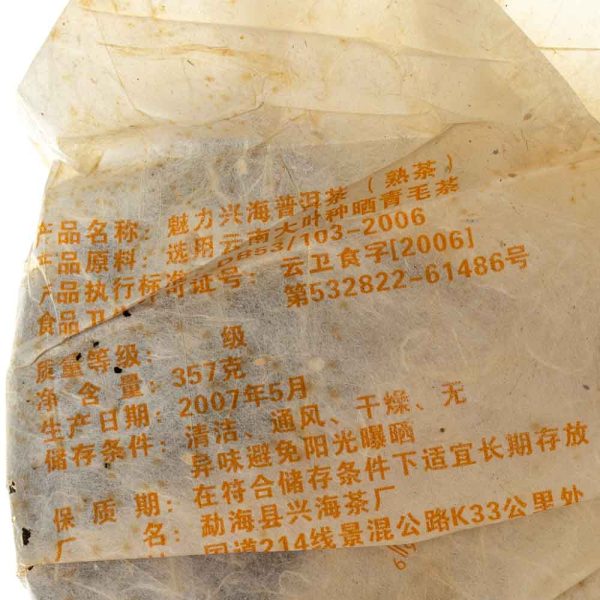 产品名称：魅力兴海普洱茶（熟茶）
产品原料：选用云南大叶种晒青毛茶
产品执行标准 DB53/103-2006
食品卫 许证号：云卫食字[2006]
第532822-61486号
质量等级： 级
净含量：357克
生产日期：2007年5月
储存条件：清洁、通风、干燥、无
异味避免阳光曝晒
保质期：在符合储存条件下适宜长期存放
厂名：勐海县兴海茶厂
国道214线景混公路K33公里处